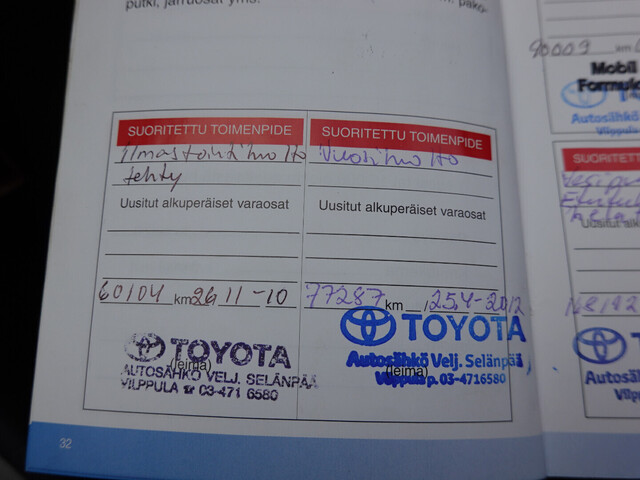 putki, jarruosat yms.
SUORITETTU TOIMENPIDE
Ilmastointihuolto
tehty
Uusitut alkuperäiset varaosat
60104 km 26.11-10
TOYOTA
(leima)
AUTOSÄHKÖ VELJ. SELÄNPÄÄ
VILPPULA ☎ 03-471 6580
SUORITETTU TOIMENPIDE
Vuosihuolto
Uusitut alkuperäiset varaosat
77287 km / 25.4-2012
TOYOTA
Autosähkö Velj. Selänpää
(leima)
Vilppula p. 03-4716580
32
90009 km
Mobil
Formula
Autosähkö
Vilppula
SUORITETTU
Uusitut
Autosähkö